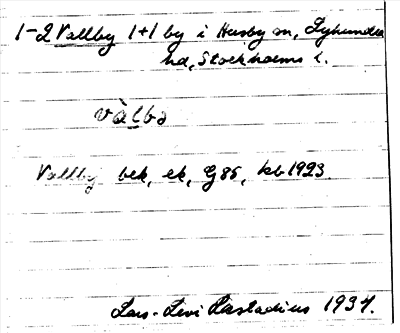 1-2 Vallby 1+1 by i Husby sn, Lyhundra
hd, Stockholms l.
vàlbə
Vallby bek, ek, G85, kb 1923.
Lars-Levi Læstadius 1934.